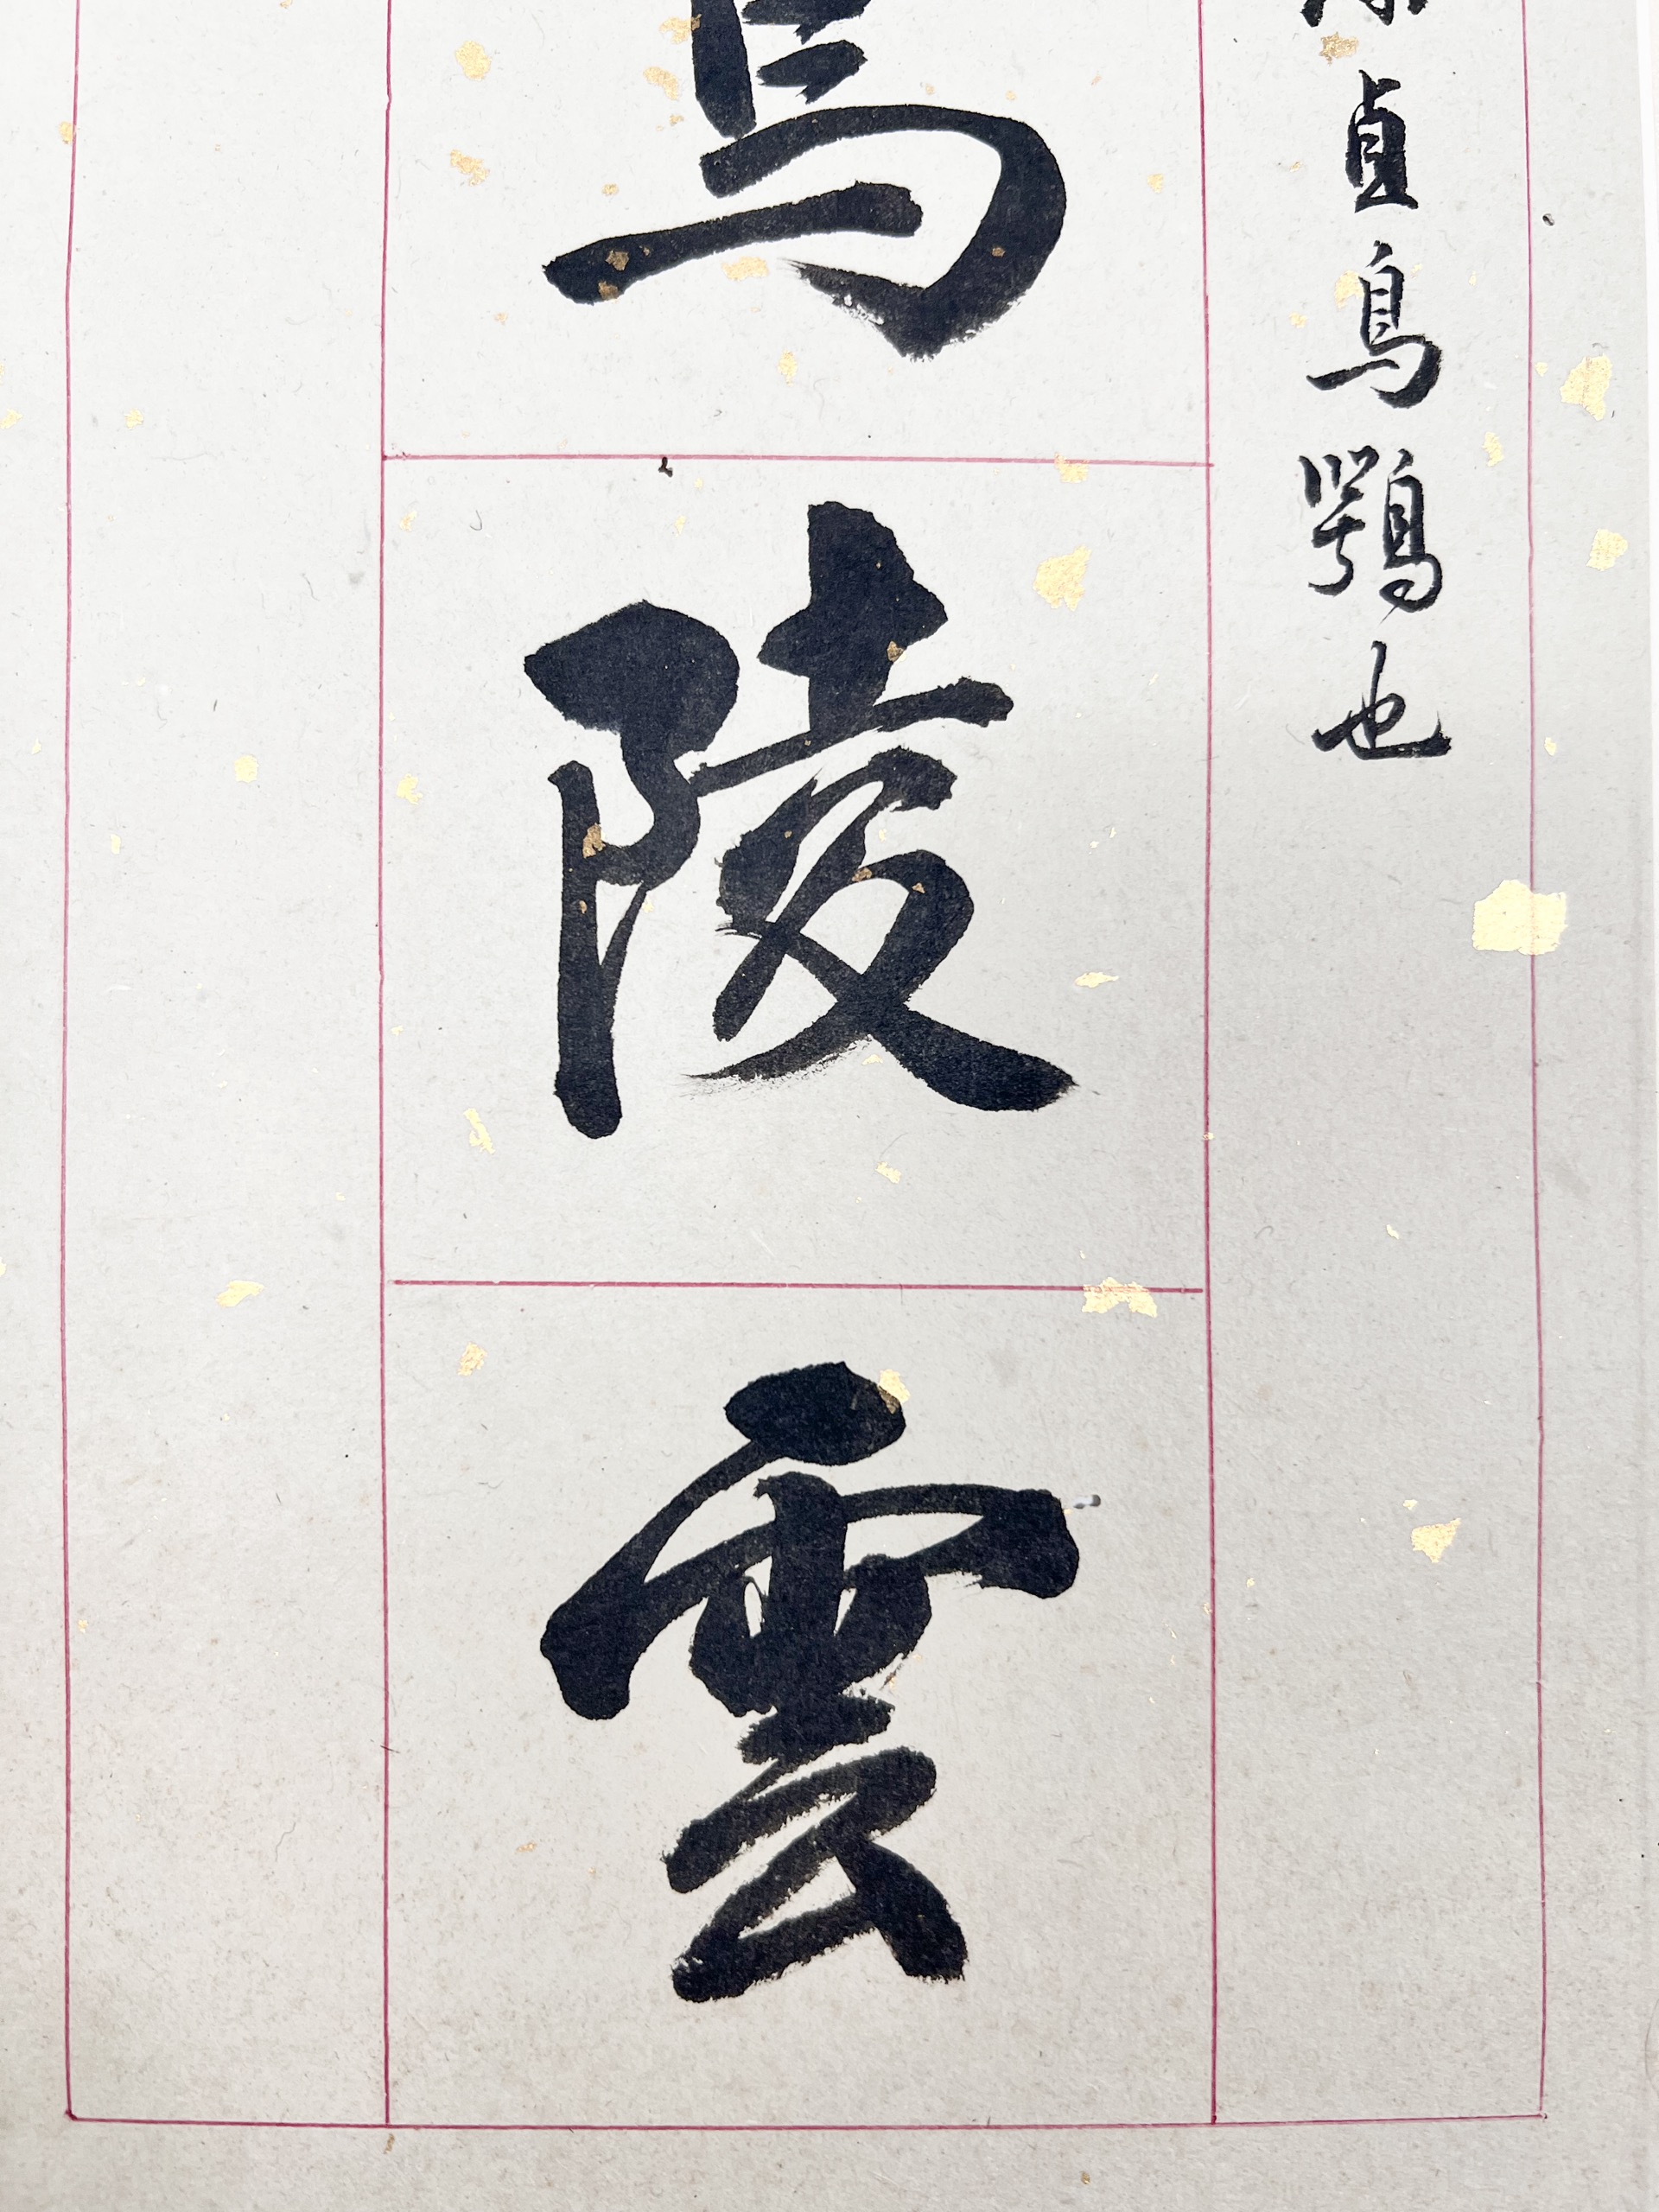 貞鳥鶚也
鳥陵雲